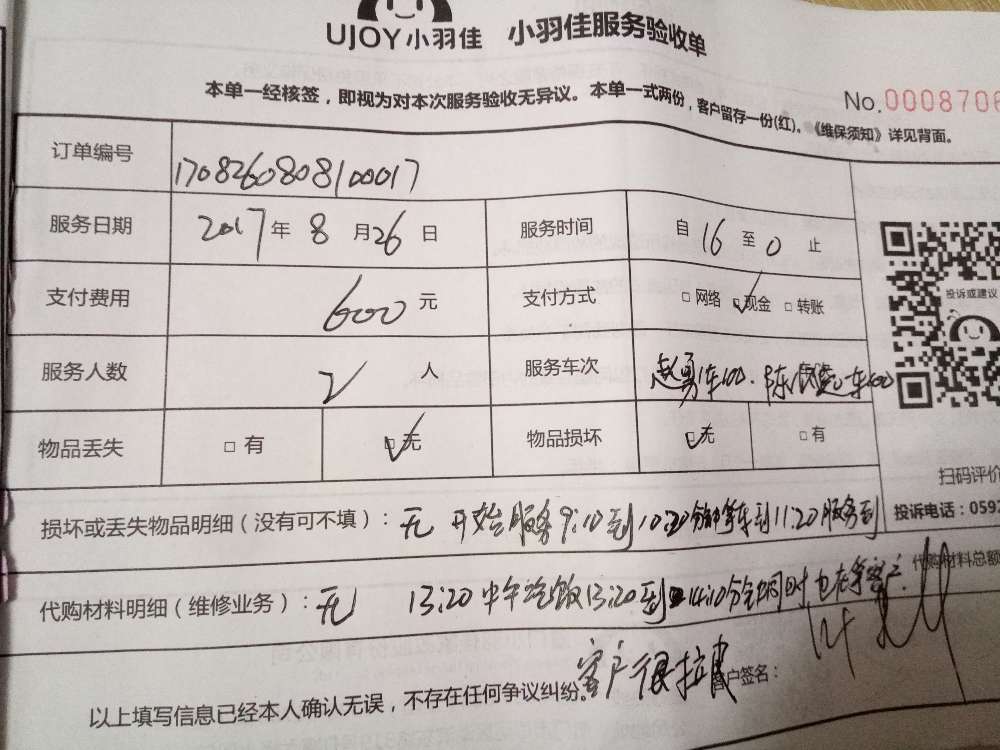 UJOY小羽佳 小羽佳服务验收单
本单一经核签，即视为对本次服务验收无异议。本单一式两份，客户留存一份(红)。《维保须知》详见背面。
No.0008706
订单编号 1708260808100017
服务日期 2017年 8 月 26 日 服务时间 自 16 至 0 止
支付费用 600 元 支付方式 □ 网络 □ 现金 □ 转账
投诉或建议
服务人数 2 人 服务车次 赵勇1车100.陈 车600
物品丢失 □ 有 □ 无 物品损坏 □ 无 □ 有
扫码评价
损坏或丢失物品明细（没有可不填）：无 开始服务9:10到10:20分 等车到11:20服务到
投诉电话：0592
代购材料总额
代购材料明细（维修业务）：无 13:20中午吃饭13:20到14:10分 同时也在等客户.
以上填写信息已经本人确认无误，不存在任何争议纠纷。客户很拉皮 客户签名：